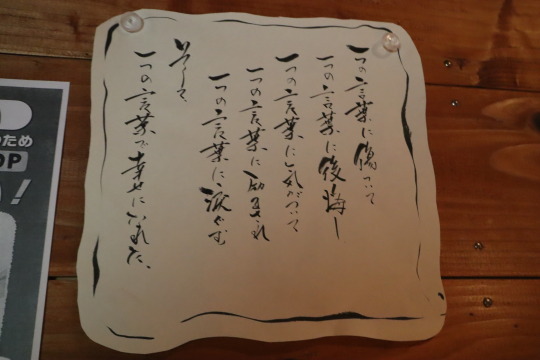 一つの言葉に傷ついて
一つの言葉に後悔し
一つの言葉に気がついて
一つの言葉に励まされ
一つの言葉に涙ぐむ
そして
一つの言葉で幸せにいれた、
のため
OP
！